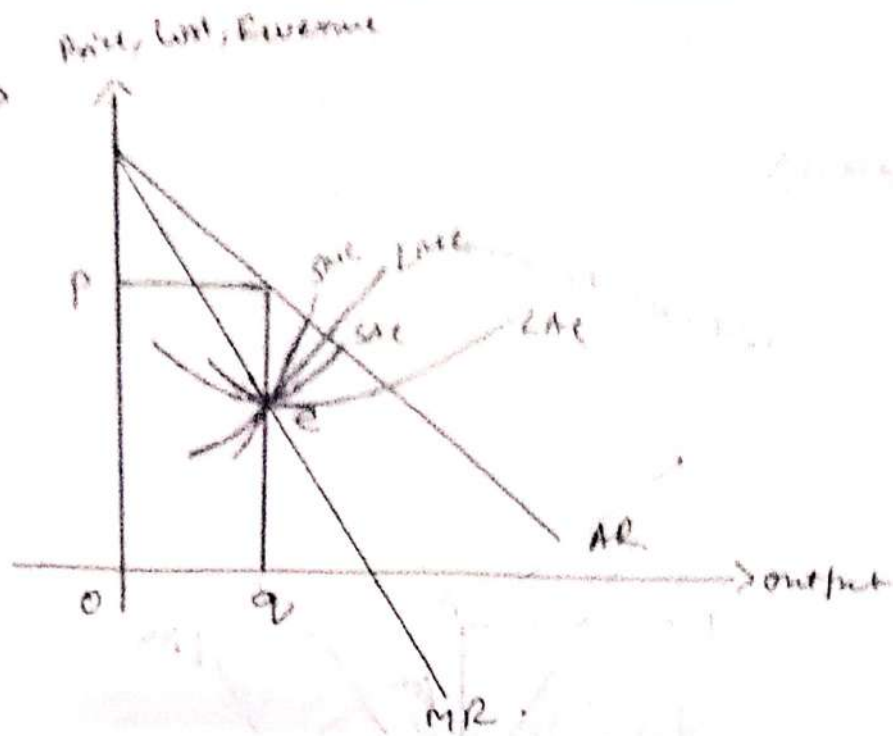 Price, Cost, Revenue
P
SMC
LMC
SAC
LAC
e
AR
O
q
output
MR.